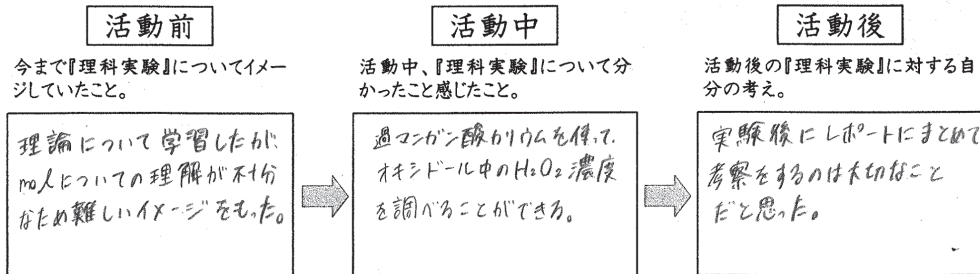 活動前
今まで『理科実験』についてイメー
ジしていたこと。
理論について学習したが、
molについての理解が不十分
なため難しいイメージをもった。
活動中
活動中、『理科実験』について分
かったこと感じたこと。
過マンガン酸カリウムを使って、
オキシドール中のH₂O₂濃度
を調べることができる。
活動後
活動後の『理科実験』に対する自
分の考え。
実験後にレポートにまとめて
考察をするのは大切なこと
だと思った。